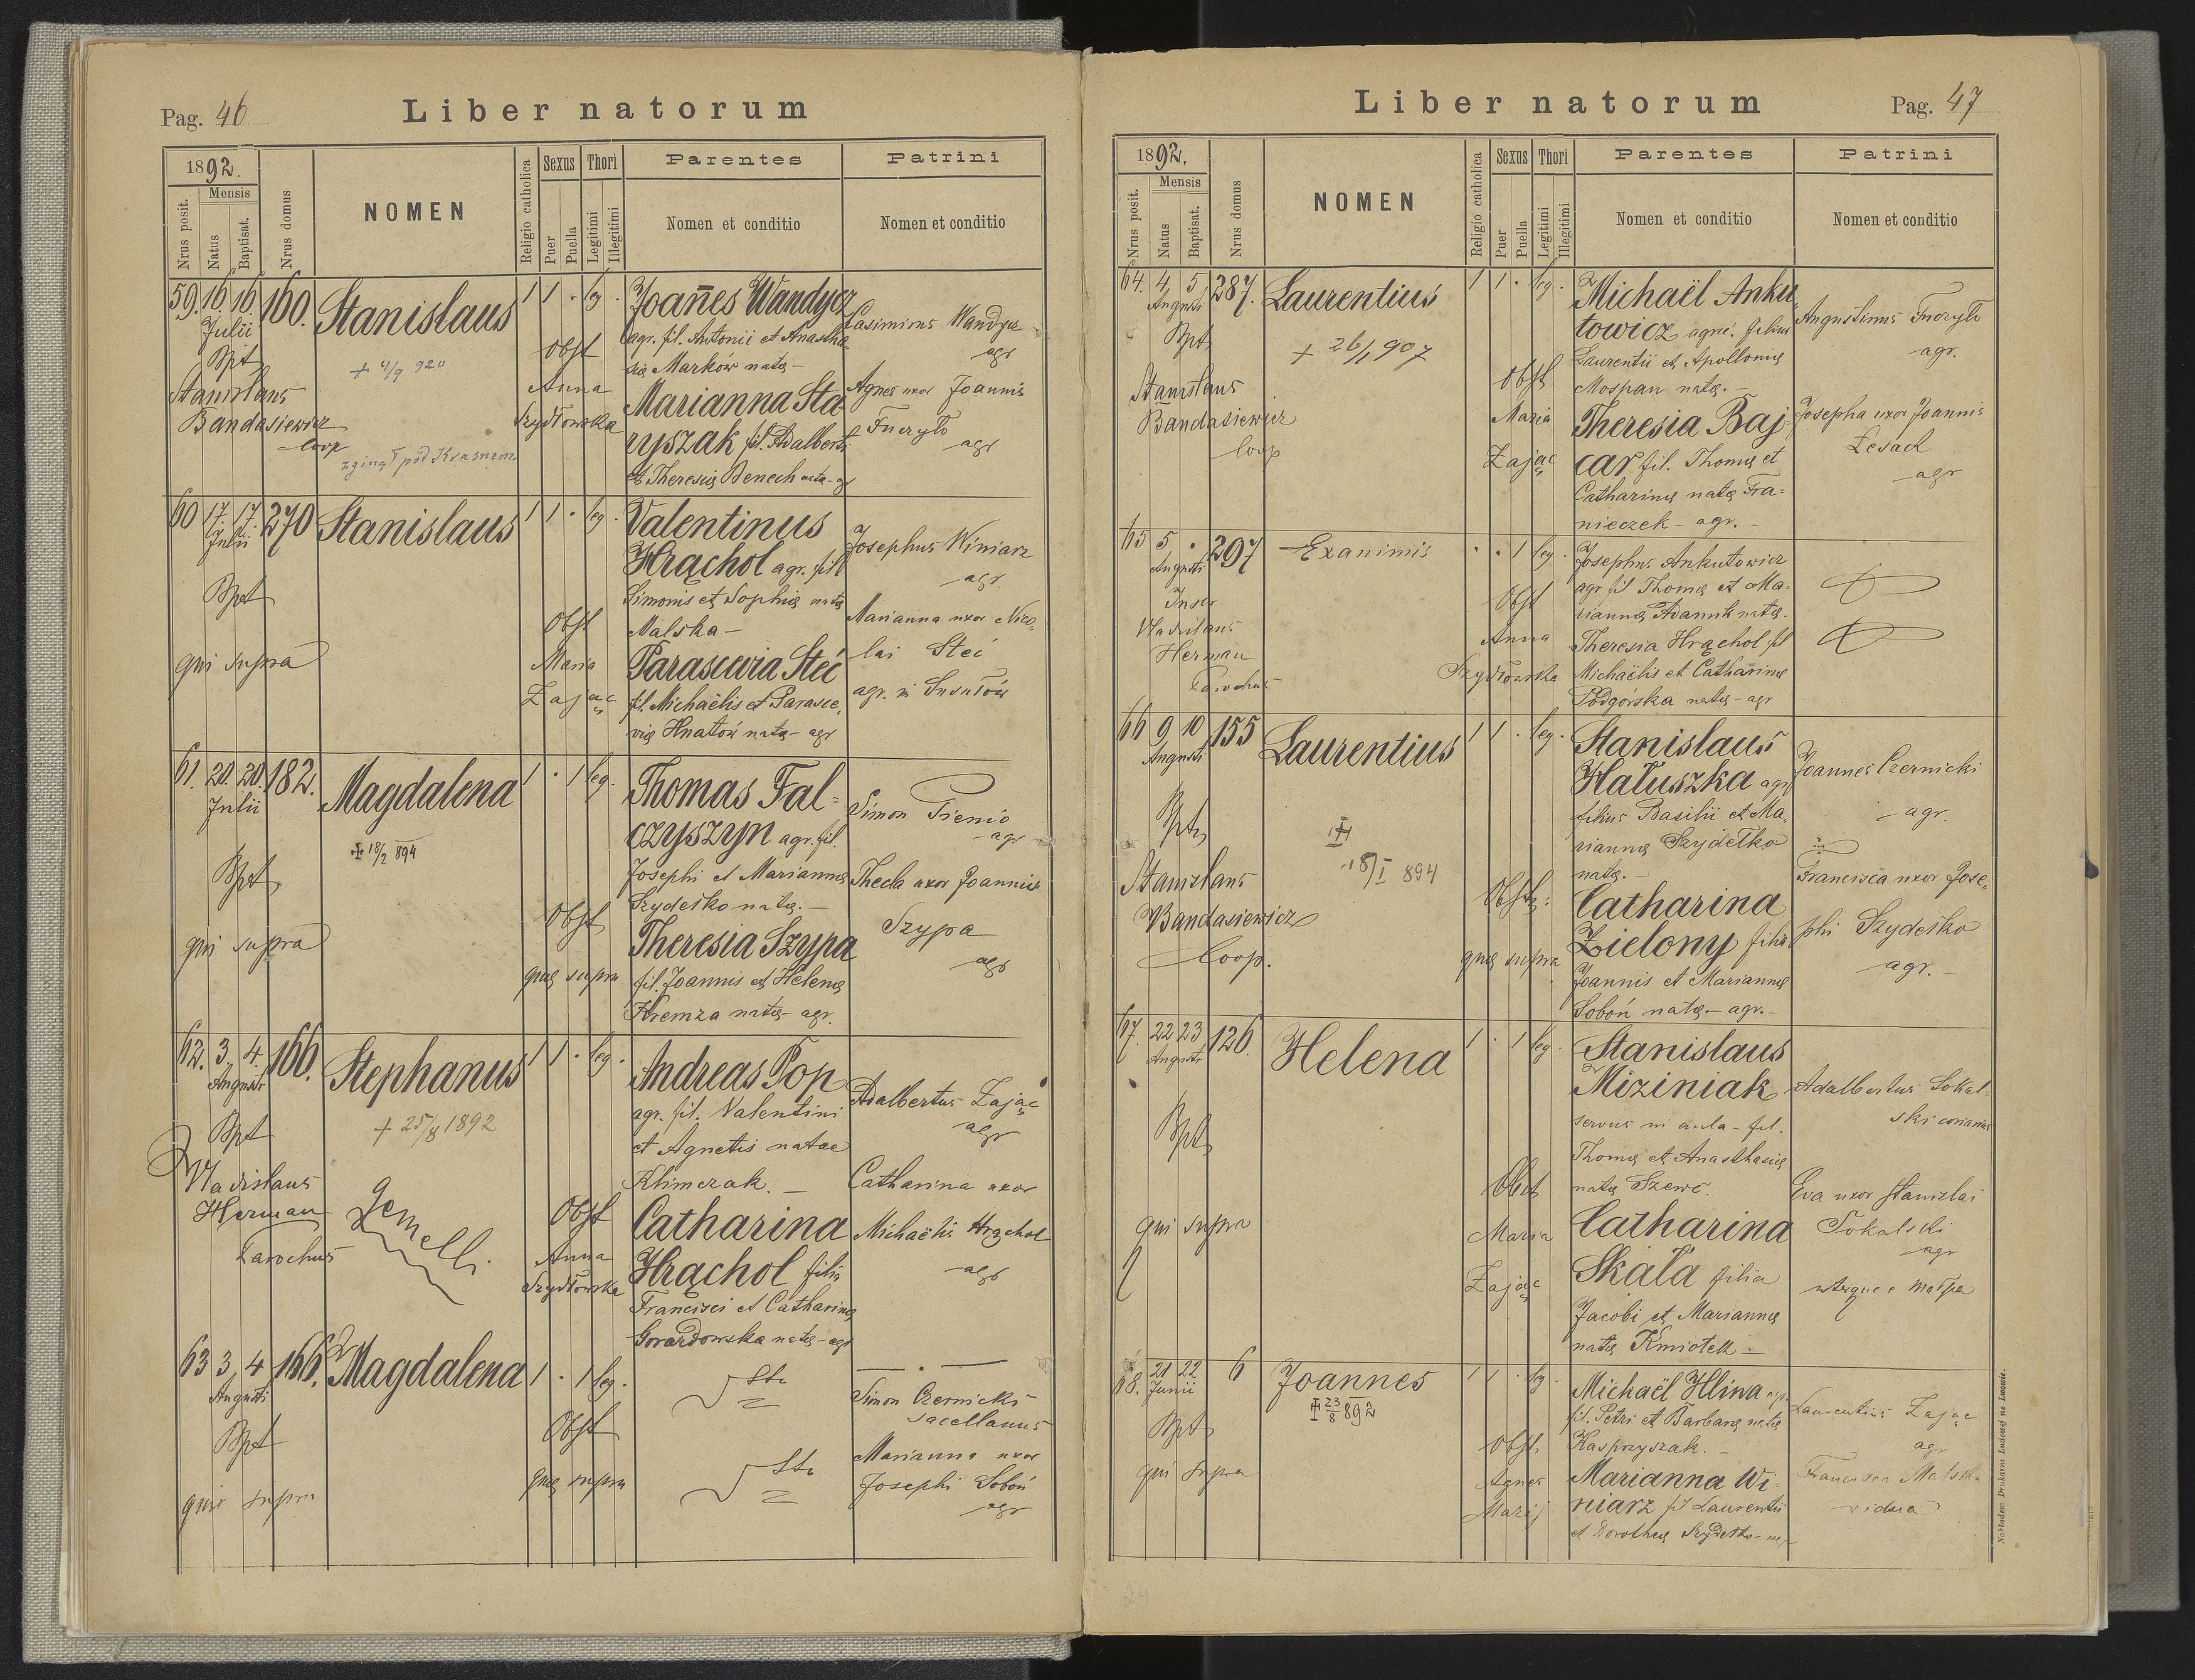 Pag. 46
Liber natorum
1892.
Nrus posit.
Mensis
Natus
Baptisat.
Nrus domus
NOMEN
Religio catholica
Sexus
Puer
Puella
Thori
Legitimi
Illegitimi
Parentes
Nomen et conditio
Patrini
Nomen et conditio
59. 16. 16. 160. Stanislaus 1 1 · leg.
Julii
Bpt
Stanislaus
Bandasiewicz
coop
+ 4/9 920
zginął pod Krasnem
Obst
Anna
Szydłowska
Joannes Wandycz
agr. fil. Antonii et Anastha
się Marków natę -
Marianna Sta
ryszak fil. Adalberti
et Theresię Benech
Casimirus Wandycz
agr
Agnes uxor Joannis
Fucryło
agr
60 17. 17. 270 Stanislaus 1 1 · leg.
Julii
Bpt
qui supra
Obst
Maria
Zając
Valentinus
Hrąchol agr. fil
Simonis et Sophię natę
Malska -
Parascevia Steć
fil. Michaëlis et Parasce
vię Hnatów natę - agr
Josephus Winiarz
agr
Marianna uxor Nico
lai Steć
agr.
61. 20. 20. 182. Magdalena 1 · 1 leg.
Julii
Bpt
qui supra
+ 18/2 894
Obst
quę supra
Thomas Fal-
czyszyn agr. fil.
Josephi et Mariannę
Szydełko natę. -
Theresia Szypa
fil. Joannis et Helenę
Kremza natę - agr.
Simon Pienio
agr
Thecla uxor Joannis
Szypa
agr
62. 3. 4. 166. Stephanus 1 1 · leg.
Augusti
Bpt
Wladislaus
Herman
Parochus
+ 25/8 1892
Gemelli
Obst
Anna
Szydłowska
Andreas Pop
agr. fil. Valentini
et Agnetis natae
Klimczak. -
Catharina
Hrąchol filia
Francisci et Catharinę
Gwardowska natę - agr
Adalbertus Zając
agr
Catharina uxor
Michaëlis Hrąchol
agr
63 3 4 166. Magdalena 1 · 1 leg.
Augusti
Bpt
qui supra
Obst
quę supra
Simon Czernicki
sacellanus
Marianna uxor
Josephi Soboń
agr
Liber natorum
Pag. 47
1892.
Nrus posit.
Mensis
Natus
Baptisat.
Nrus domus
NOMEN
Religio catholica
Sexus
Puer
Puella
Thori
Legitimi
Illegitimi
Parentes
Nomen et conditio
Patrini
Nomen et conditio
64. 4 5 287. Laurentius 1 1 · leg.
Augusti
Bpt
Stanislaus
Bandasiewicz
coop
+ 26/1 907
Obst
Maria
Zając
Michaël Anku
towicz agric. filius
Laurentii et Apollonię
Mospan natę. -
Theresia Baj-
car fil. Thomę et
Catharinę natę Fra-
nieczek - agr. -
Augustinus Fucryło
agr.
Josepha uxor Joannis
Lesach
agr
65 5 · 297 Exanimis · · 1 leg.
Augusti
Inser
Wladislaus
Herman
Parochus
Obst
Anna
Szydłowska
Josephus Ankutowicz
agr fil Thomę et Ma-
riannę Adamik natę.
Theresia Hrąchol fil
Michaëlis et Catharinę
Podgórska natę - agr
66 9 10 155 Laurentius 1 1 · leg.
Augusti
Bpt
Stanislaus
Bandasiewicz
Coop.
+ 18/I 894
Obst
quę supra
Stanislaus
Hałuszka agr
filius Basilii et Ma
riannę Szydełko
natę. -
Catharina
Zielony filia
Joannis et Mariannę
Soboń natę - agr. -
Joannes Czernicki
agr.
Francisca uxor Jose
phi Szydełko
agr. -
67. 22 23 126. Helena 1 · 1 leg.
Augusti
Bpt
qui supra
Obst
Maria
Zając
Stanislaus
Miziniak
servus in aula - fil.
Thomę et Anasthasię
natę Szewc.
Catharina
Skała filia
Jacobi et Mariannę
natę Kmiotek -
Adalbertus Sokal-
ski
Eva uxor Stanislai
Sokalski
agr
68. 21 22 6 Joannes 1 1 · leg.
Junii
Bpt
qui supra
+ 23/8 892
Obst.
Agnes
Marij
Michaël Hliwa agr
fil. Petri et Barbarę natę
Kasprzyszak. -
Marianna Wi-
niarz fil Laurentii
et Dorotheę Szydełko
Laurentius Zając
agr
Francisca Malska
vidua
Nakładem Drukarni Ludowej we Lwowie.
24